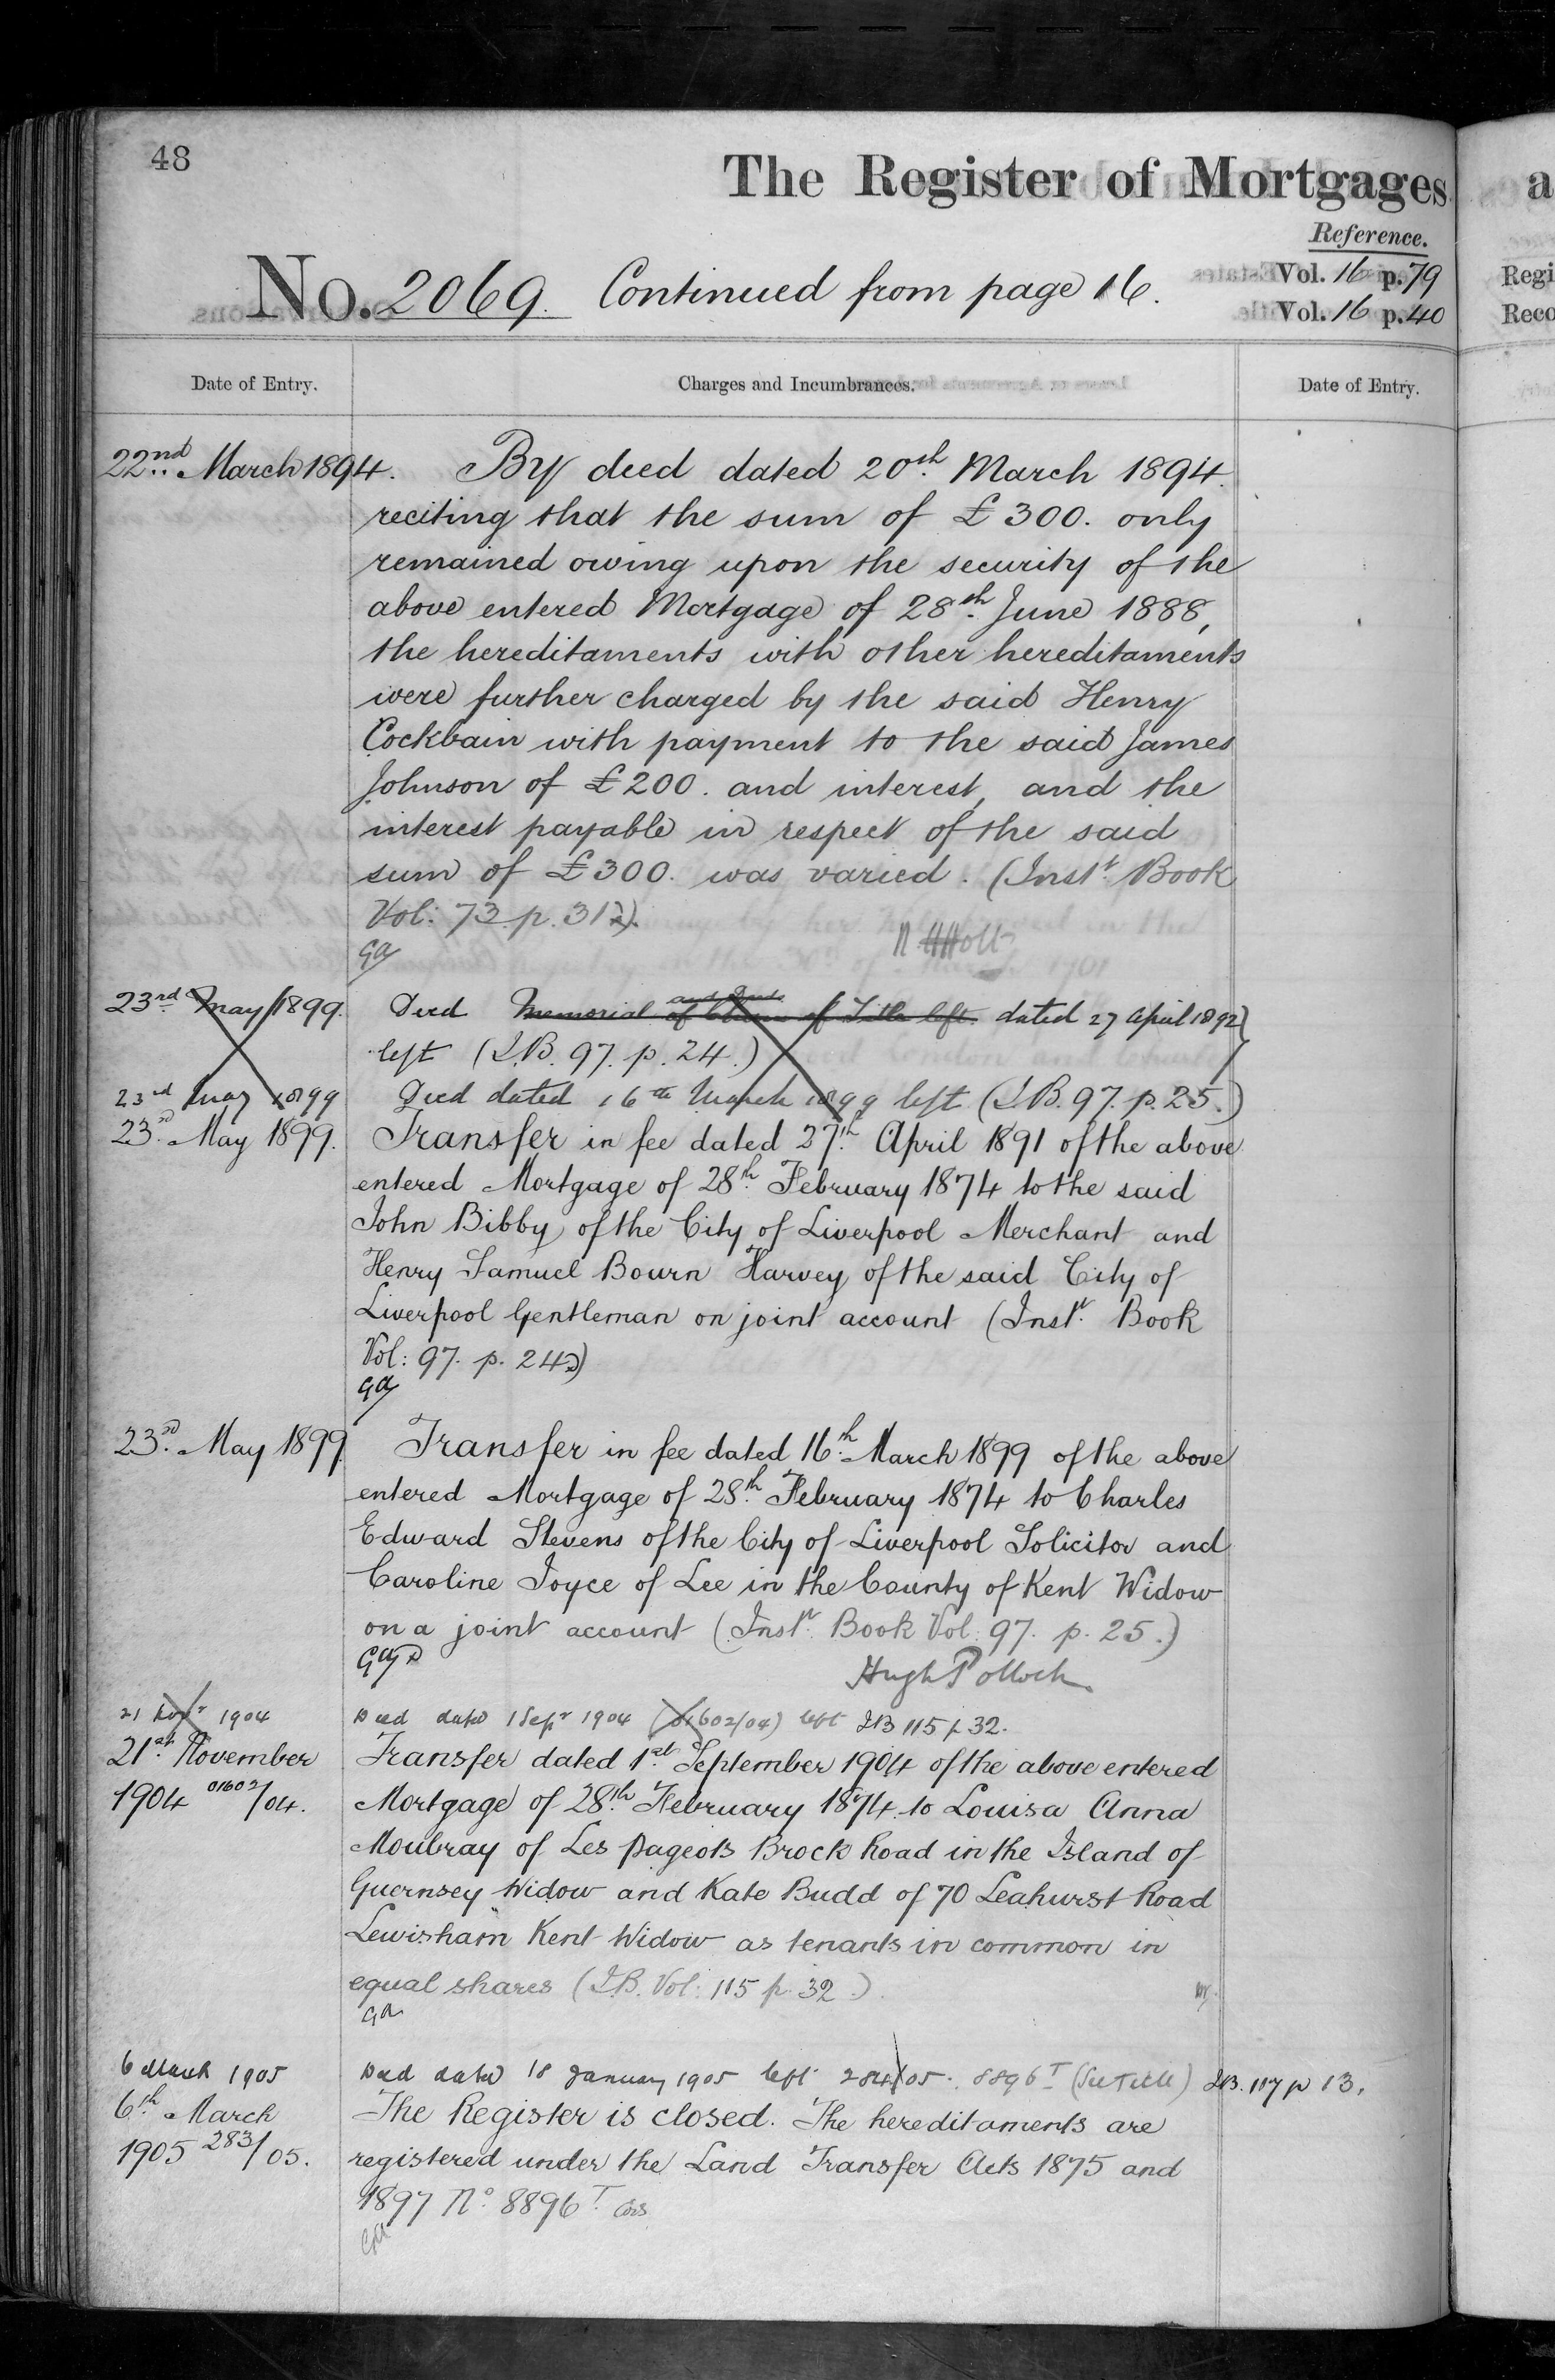 48
The Register of Mortgages
Reference.
No. 2069. Continued from page 16.
Vol. 16 p. 79
Vol. 16 p. 40
Regi
Reco
Date of Entry. Charges and Incumbrances. Date of Entry.
22nd March 1894. By deed dated 20th March 1894.
reciting that the sum of £300. only
remained owing upon the security of the
above entered Mortgage of 28th June 1888,
the hereditaments with other hereditaments
were further charged by the said Henry
Cockbain with payment to the said James
Johnson of £200. and interest, and the
interest payable in respect of the said
sum of £300. was varied. (Inst. Book
Vol: 73. p. 312).
Ga
23rd May 1899. Deed Memorial of of Title left. dated 27 April 1892
left (I.B. 97. p. 24.)
23rd May 1899 Deed dated 16th March 1899 left (I.B. 97. p. 25.)
23rd May 1899. Transfer in fee dated 27th April 1891 of the above
entered Mortgage of 28th February 1874 to the said
John Bibby of the City of Liverpool Merchant and
Henry Samuel Bourn Harvey of the said City of
Liverpool Gentleman on joint account (Inst. Book
Vol: 97. p. 24)
Ga
23rd May 1899 Transfer in fee dated 16th March 1899 of the above
entered Mortgage of 28th February 1874 to Charles
Edward Stevens of the City of Liverpool Solicitor and
Caroline Joyce of Lee in the County of Kent Widow
on a joint account (Inst. Book Vol: 97. p. 25.)
Ga
Hugh Pollock
21 Novr 1904 Deed dated 1 Sepr 1904 (01602/04) left IB 115 p 32.
21st November Transfer dated 1st September 1904 of the above entered
1904 01602/04. Mortgage of 28th February 1874 to Louisa Anna
Moubray of Les Pageots Brock Road in the Island of
Guernsey Widow and Kate Budd of 70 Leahurst Road
Lewisham Kent Widow as tenants in common in
equal shares (I.B. Vol: 115 p. 32.)
Ga
6 March 1905 Deed dated 18 January 1905 left 284/05. 8896T (See Title) IB. 117 p 13.
6th March The Register is closed. The hereditaments are
1905 283/05. registered under the Land Transfer Acts 1875 and
1897 No. 8896T.
Ga